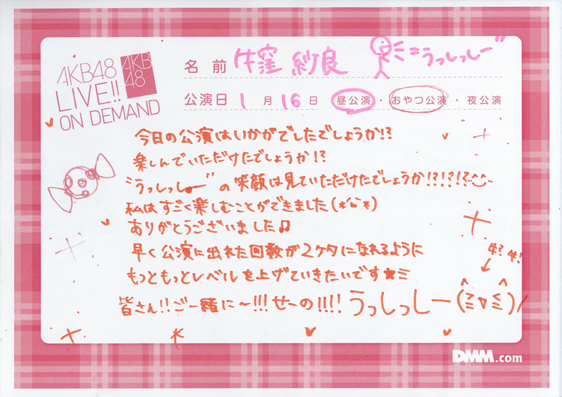 AKB48
LIVE!!
ON DEMAND
AKB
48
名前 牛窪 紗良 "うっしっしー"
公演日 1月16日 昼公演・おやつ公演・夜公演
今日の公演はいかがでしたでしょうか!?
楽しんでいただけたでしょうか!?
"うっしっしー"の笑顔は見ていただけたでしょうか!?!?!?
私はすごく楽しむことができました
ありがとうございました♫
早く公演に出れた回数が2ケタになれるように
もっともっとレベルを上げていきたいです★ミ
皆さん!!ご一緒に〜!!!せーの!!!!うっしっしー
DMM.com